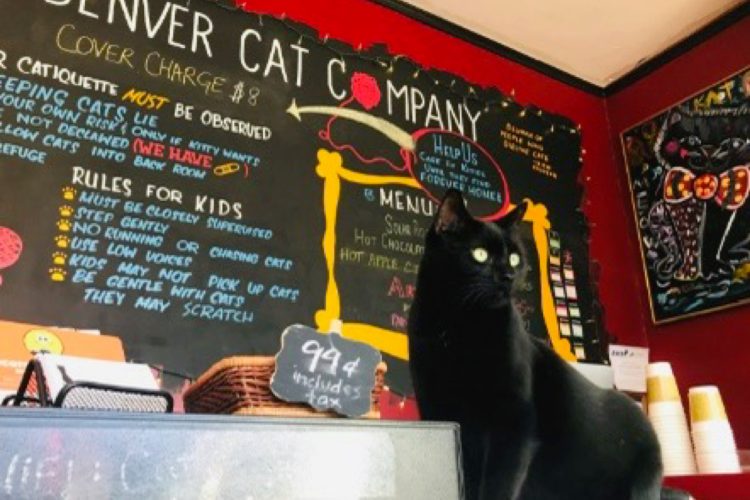 DENVER CAT COMPANY
COVER CHARGE $8
CATIQUETTE MUST BE OBSERVED
CATS LIE
YOUR OWN RISK & ONLY IF KITTY WANTS
NOT DECLAWED (WE HAVE
CATS INTO BACK ROOM
REFUGE
RULES FOR KIDS
MUST BE CLOSELY SUPERVISED
STEP GENTLY
NO RUNNING OR CHASING CATS
USE LOW VOICES
KIDS MAY NOT PICK UP CATS
BE GENTLE WITH CATS
THEY MAY SCRATCH
HELP US
CARE FOR KITTIES
UNTIL THEY FIND
FOREVER HOMES
BEWARE OF
PEOPLE WHO
DISLIKE CATS
MENU
HOT
HOT APPLE
99¢
includes
tax